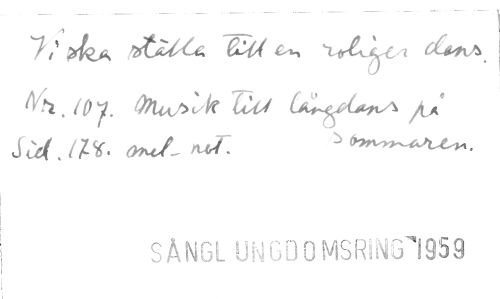 Vi ska ställa till en roliger dans.
Nr. 107. Musik till långdans på
Sid. 178. mel-not. Sommaren.
SÅNGL UNGDOMSRING 1959